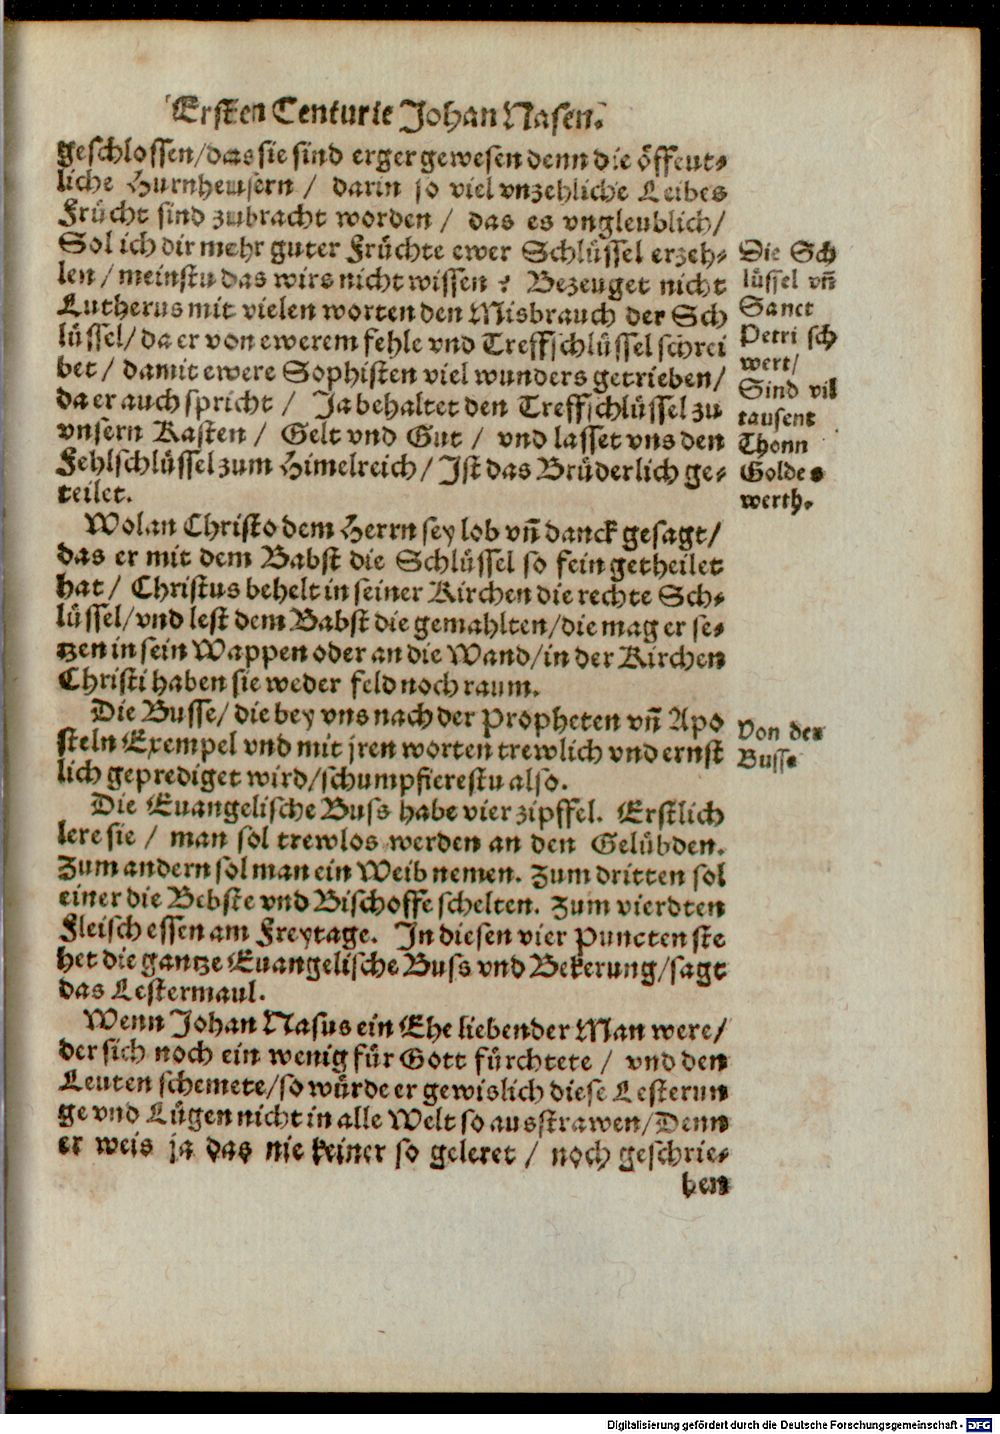 Ersten Centurie Johan Nasen.
geschlossen/das sie sind erger gewesen denn die öffent⸗
liche Hurnheusern / darin so viel vnzehliche Leibes
Frücht sind zubracht worden / das es vngleublich/
Sol ich dir mehr guter Früchte ewer Schlüssel erzeh⸗
len / meinstu das wirs nicht wissen ? Bezeuget nicht
Lutherus mit vielen worten den Misbrauch der Sch
lüssel/ da er von ewerem fehle vnd Treffschlüssel schrei
bet / damit ewere Sophisten viel wunders getrieben/
da er auch spricht / Ja behaltet den Treffschlüssel zu
vnsern Kasten / Gelt vnd Gut / vnd lasset vns den
Fehlschlüssel zum Himelreich/ Ist das Brüderlich ge⸗
teilet.
Die Sch
lüssel vñ
Sanct
Petri sch
wert/
Sind vil
tausent
Thonn
Goldes
werth.
Wolan Christo dem Herrn sey lob vñ danck gesagt/
das er mit dem Babst die Schlüssel so fein getheilet
hat / Christus behelt in seiner Kirchen die rechte Sch⸗
lüssel/vnd lest dem Babst die gemahlten/die mag er se⸗
tzen in sein Wappen oder an die Wand/in der Kirchen
Christi haben sie weder feld noch raum.
Die Busse/ die bey vns nach der Propheten vñ Apo
steln Exempel vnd mit jren worten trewlich vnd ernst
lich geprediget wird/schumpfierestu also.
Von der
Busse
Die Euangelische Buss habe vier zipffel. Erstlich
lere sie / man sol trewlos werden an den Gelübden.
Zum andern sol man ein Weib nemen. Zum dritten sol
einer die Bebste vnd Bischoffe schelten. Zum vierdten
Fleisch essen am Freytage. In diesen vier Puncten ste
het die gantze Euangelische Buss vnd Bekerung/sagt
das Lestermaul.
Wenn Johan Nasus ein Ehe liebender Man were/
der sich noch ein wenig für Gott fürchtete / vnd den
Leuten schemete/so würde er gewislich diese Lesterun
ge vnd Lügen nicht in alle Welt so ausstrawen/Denn
er weis ja das nie keiner so geleret / noch geschrie⸗
ben
Digitalisierung gefördert durch die Deutsche Forschungsgemeinschaft - DFG